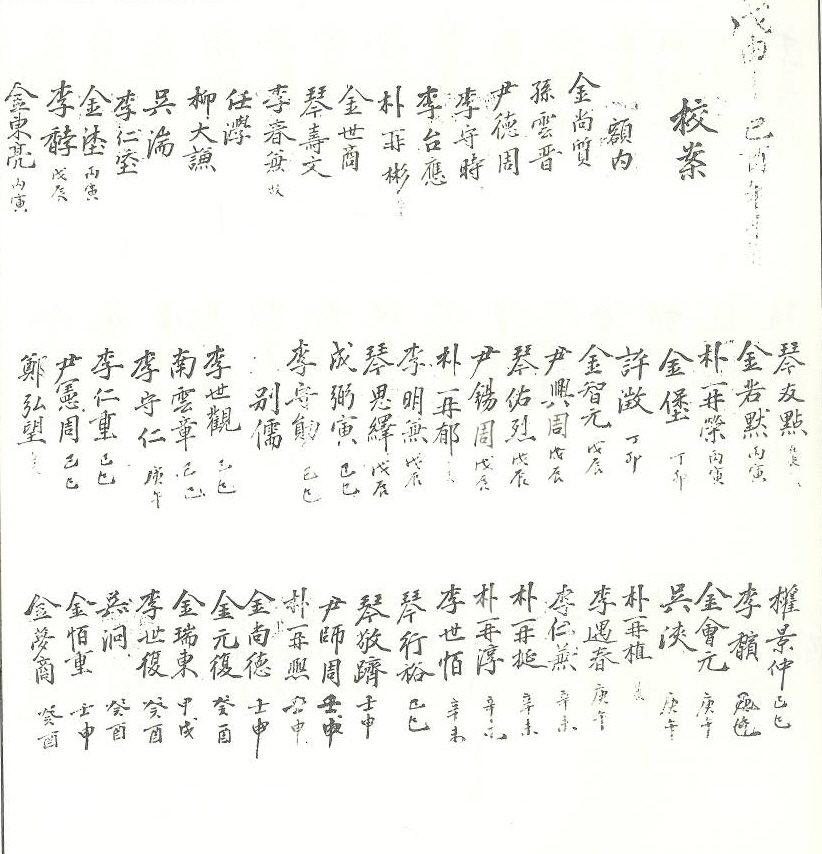 戊申 己酉年
校案
額內
金尚質
孫雲晋
尹德周
李守時
李台應
朴再彬
金世商
琴壽文
李春茂 故
任㶅
柳大謙
吳湍
李仁室
金 丙寅
李馞 戊辰
金東亮 丙寅
琴友點
金若默 丙寅
朴再榮 丙寅
金堡 丁卯
許澂 丁卯
金智元 戊辰
尹興周 戊辰
琴佑烈 戊辰
尹錫周 戊辰
朴再郁
李明兼 戊辰
琴思繹 戊辰
成弼寅 己巳
李守 己巳
別儒
李世觀 己巳
南雲章 己巳
李守仁 庚午
李仁重 己巳
尹憲周 己巳
鄭弘望
權景仲 己巳
李馪
金會元 庚午
吳浹 庚午
朴再植
李遇春 庚午
李仁兼 辛未
朴再 辛未
朴再淳 辛未
李世恒 辛未
琴行裕 己巳
琴敬躋 壬申
尹師周 壬申
朴再興 壬申
金尚德 壬申
金元復 癸酉
金瑞東 甲戌
李世復 癸酉
吳泂 癸酉
金恒重 壬申
金夢商 癸酉